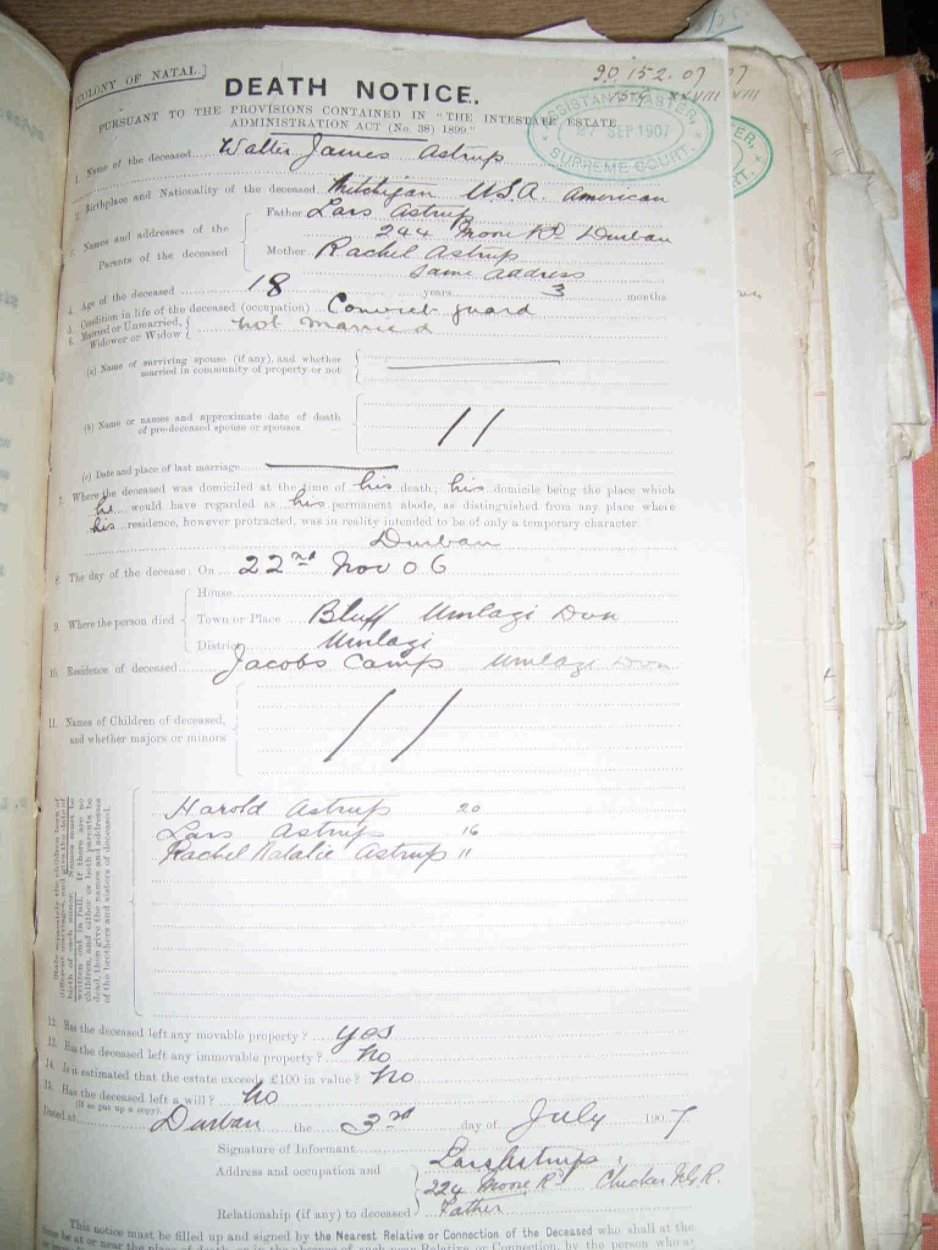 COLONY OF NATAL.]
90.152.07
DEATH NOTICE.
PURSUANT TO THE PROVISIONS CONTAINED IN "THE INTESTATE ESTATE
ADMINISTRATION ACT (No. 38) 1899"
ASSISTANT MASTER,
27 SEP 1907
SUPREME COURT.
1. Name of the deceased Walter James Astrup
2. Birthplace and Nationality of the deceased Mitchigan U.S.A. American
3. Names and addresses of the Parents of the deceased
Father Lars Astrup
244 Moore Rd Durban
Mother Rachel Astrup
Same address
4. Age of the deceased 18 years 3 months
5. Condition in life of the deceased (occupation) Convict guard
6. Married or Unmarried, Widower or Widow { not married
(a) Name of surviving spouse (if any), and whether
married in community of property or not
(b) Name or names and approximate date of death
of pre-deceased spouse or spouses ...
(c) Date and place of last marriage
7. Where the deceased was domiciled at the time of his death; his domicile being the place which
he would have regarded as his permanent abode, as distinguished from any place where
his residence, however protracted, was in reality intended to be of only a temporary character.
Durban
8. The day of the decease: On 22nd Nov 06
9. Where the person died
House
Town or Place Bluff Umlazi Don
District Umlazi
10. Residence of deceased Jacobs Camp Umlazi Don
11. Names of Children of deceased,
and whether majors or minors
State separately the children born of
different marriages, and give the date of
birth of each minor. Names must be
written out in full. If there are no
children, and either or both parents be
dead, then give the names and addresses
of the brothers and sisters of deceased.
Harold Astrup 20
Lars Astrup 16
Rachel Natalie Astrup 11
12. Has the deceased left any movable property? yes
13. Has the deceased left any immovable property? no
14. Is it estimated that the estate exceeds £100 in value? no
15. Has the deceased left a will? no
(If so put up a copy).
Dated at Durban the 3rd day of July 1907
Signature of Informant Lars Astrup
Address and occupation and 224 Moore Rd Checker N.G.R.
Relationship (if any) to deceased Father
This notice must be filled up and signed by the Nearest Relative or Connection of the Deceased who shall at the